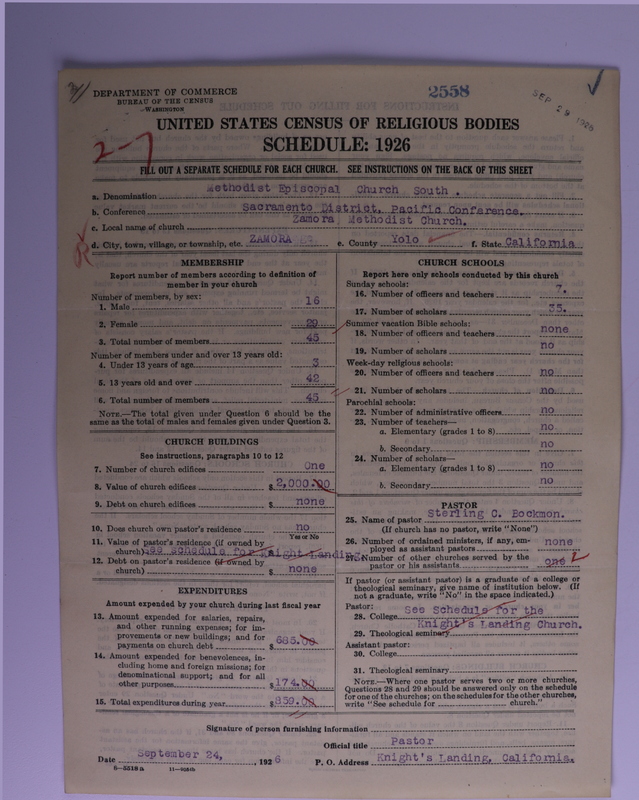 3//
DEPARTMENT OF COMMERCE
BUREAU OF THE CENSUS
WASHINGTON
2558
SEP 29 1926
UNITED STATES CENSUS OF RELIGIOUS BODIES
SCHEDULE: 1926
2-7
FILL OUT A SEPARATE SCHEDULE FOR EACH CHURCH. SEE INSTRUCTIONS ON THE BACK OF THIS SHEET
a. Denomination Methodist Episcopal Church South .
b. Conference Sacramento District, Pacific Conference.
c. Local name of church Zamora Methodist Church.
d. City, town, village, or township, etc. ZAMORA e. County Yolo f. State California
MEMBERSHIP
Report number of members according to definition of
member in your church
Number of members, by sex:
1. Male 16
2. Female 29
3. Total number of members 45
Number of members under and over 13 years old:
4. Under 13 years of age 3
5. 13 years old and over 42
6. Total number of members 45
NOTE.—The total given under Question 6 should be the
same as the total of males and females given under Question 3.
CHURCH BUILDINGS
See instructions, paragraphs 10 to 12
7. Number of church edifices One
8. Value of church edifices $2,000.00
9. Debt on church edifices $ none
10. Does church own pastor's residence no
Yes or No
11. Value of pastor's residence (if owned by
church) See schedule for Knight Landing.
12. Debt on pastor's residence (if owned by
church) $ none
EXPENDITURES
Amount expended by your church during last fiscal year
13. Amount expended for salaries, repairs,
and other running expenses; for im-
provements or new buildings; and for
payments on church debt $685.00
14. Amount expended for benevolences, in-
cluding home and foreign missions; for
denominational support; and for all
other purposes $174.00
15. Total expenditures during year $859.00
CHURCH SCHOOLS
Report here only schools conducted by this church
Sunday schools:
16. Number of officers and teachers 7.
17. Number of scholars 35.
Summer vacation Bible schools:
18. Number of officers and teachers none
19. Number of scholars no
Week-day religious schools:
20. Number of officers and teachers no
21. Number of scholars no
Parochial schools:
22. Number of administrative officers no
23. Number of teachers—
a. Elementary (grades 1 to 8) no
b. Secondary no
24. Number of scholars—
a. Elementary (grades 1 to 8) no
b. Secondary no
PASTOR
25. Name of pastor Sterling C. Bockmon.
(If church has no pastor, write "None")
26. Number of ordained ministers, if any, em-
ployed as assistant pastors none
27. Number of other churches served by the
pastor or his assistants one
If pastor (or assistant pastor) is a graduate of a college or
theological seminary, give name of institution below. (If
not a graduate, write "No" in the space indicated.)
Pastor:
28. College See Schedule for the
29. Theological seminary Knight's Landing Church.
Assistant pastor:
30. College
31. Theological seminary
NOTE.—Where one pastor serves two or more churches,
Questions 28 and 29 should be answered only on the schedule
for one of the churches; on the schedules for the other churches,
write "See schedule for church."
Signature of person furnishing information
Official title Pastor
Date September 24, , 1926 P. O. Address Knight's Landing, California.